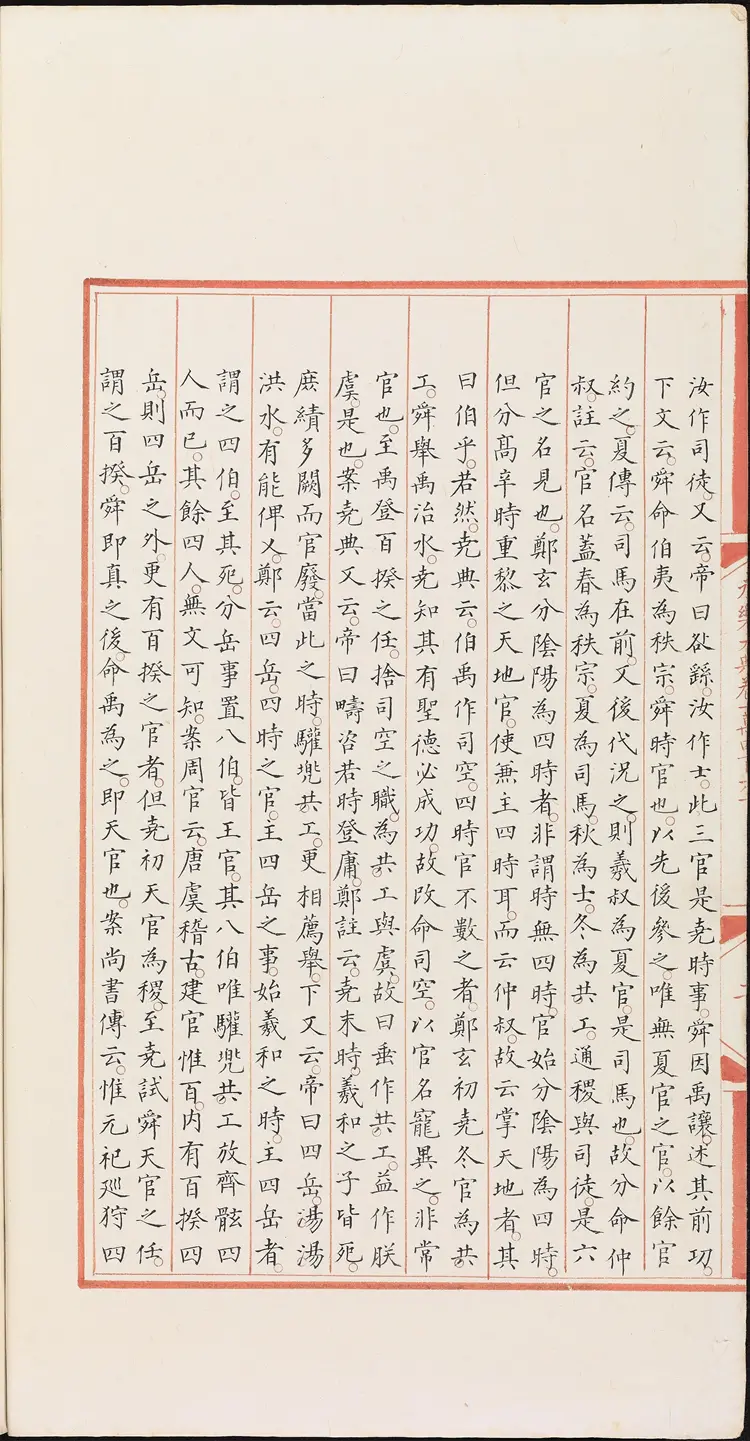 汝作司徒。又云。帝曰咎繇。汝作士。此三官是堯時事。舜因禹讓。述其前功。
下文云。舜命伯夷為秩宗。舜時官也。以先後參之。唯無夏官之官。以餘官
約之。夏傳云。司馬在前。又後代況之。則羲叔為夏官。是司馬也。故分命仲
叔。註云。官名蓋春為秩宗。夏為司馬。秋為士。冬為共工。通稷與司徒。是六
官之名見也。鄭玄分陰陽為四時者。非謂時無四時。官始分陰陽為四時。
但分高辛時重黎之天地官。使兼主四時耳。而云仲叔。故云掌天地者。其
曰伯乎。若然。堯典云。伯禹作司空。四時官不數之者。鄭玄初堯冬官為共
工。舜舉禹治水。堯知其有聖德必成功。故改命司空。以官名寵異之。非常
官也。至禹登百揆之任。捨司空之職。為共工與虞。故曰垂作共工。益作朕
虞。是也。案堯典又云。帝曰疇咨若時登庸。鄭註云。堯末時。羲和之子皆死。
庶績多闕而官廢。當此之時。驩兜共工。更相薦舉。下又云。帝曰四岳。湯湯
洪水。有能俾乂。鄭云。四岳。四時之官。主四岳之事。始羲和之時。主四岳者。
謂之四伯。至其死。分岳事置八伯。皆王官。其八伯唯驩兜共工放齊骸四
人而已。其餘四人。無文可知。案周官云。唐虞稽古。建官惟百。内有百揆四
岳。則四岳之外。更有百揆之官者。但堯初天官為稷。至堯試舜天官之任。
謂之百揆。舜即真之後。命禹為之。即天官也。案尚書傳云。惟元祀廵狩四